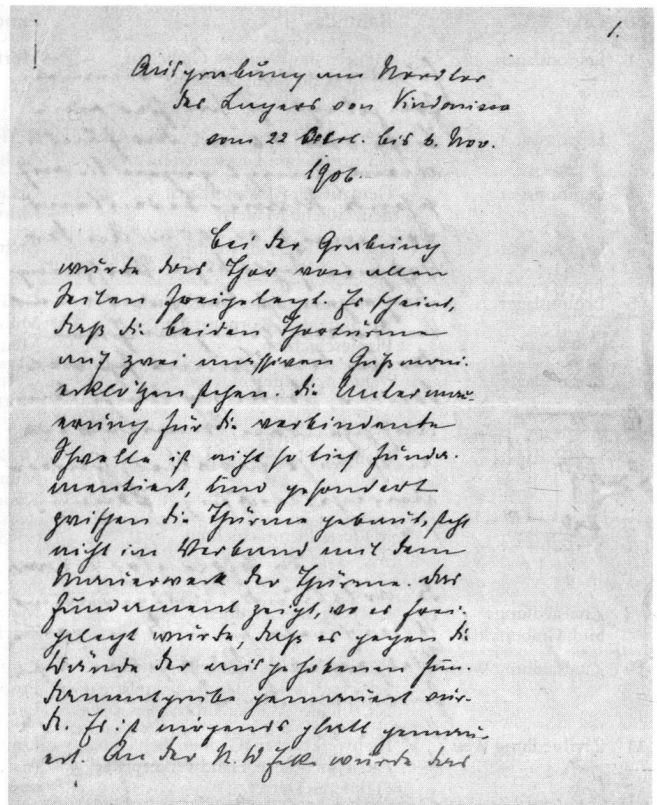 1.
Ausgrabung am Nordtor
des Lagers von Vindonissa
vom 22 Oct. bis 6. Nov.
1906.
Bei der Grabung
wurde das Thor von allen
Seiten freigelegt. Es scheint,
daß die beiden Thortürme
auf zwei massiven Gußmau-
erklötzen stehen. Die Untermau-
erung für die verbindende
Schwelle ist nicht so tief funda-
mentiert, und gesondert
zwischen die Thürme gebaut, steht
nicht im Verband mit dem
Mauerwerk der Thürme. Das
Fundament zeigt, wo es frei-
gelegt wurde, daß es gegen die
Wände der ausgehobenen Fun-
damentgrube gemauert wur-
de. Es ist nirgends glatt gemau-
ert. An der N.W Ecke wurde das